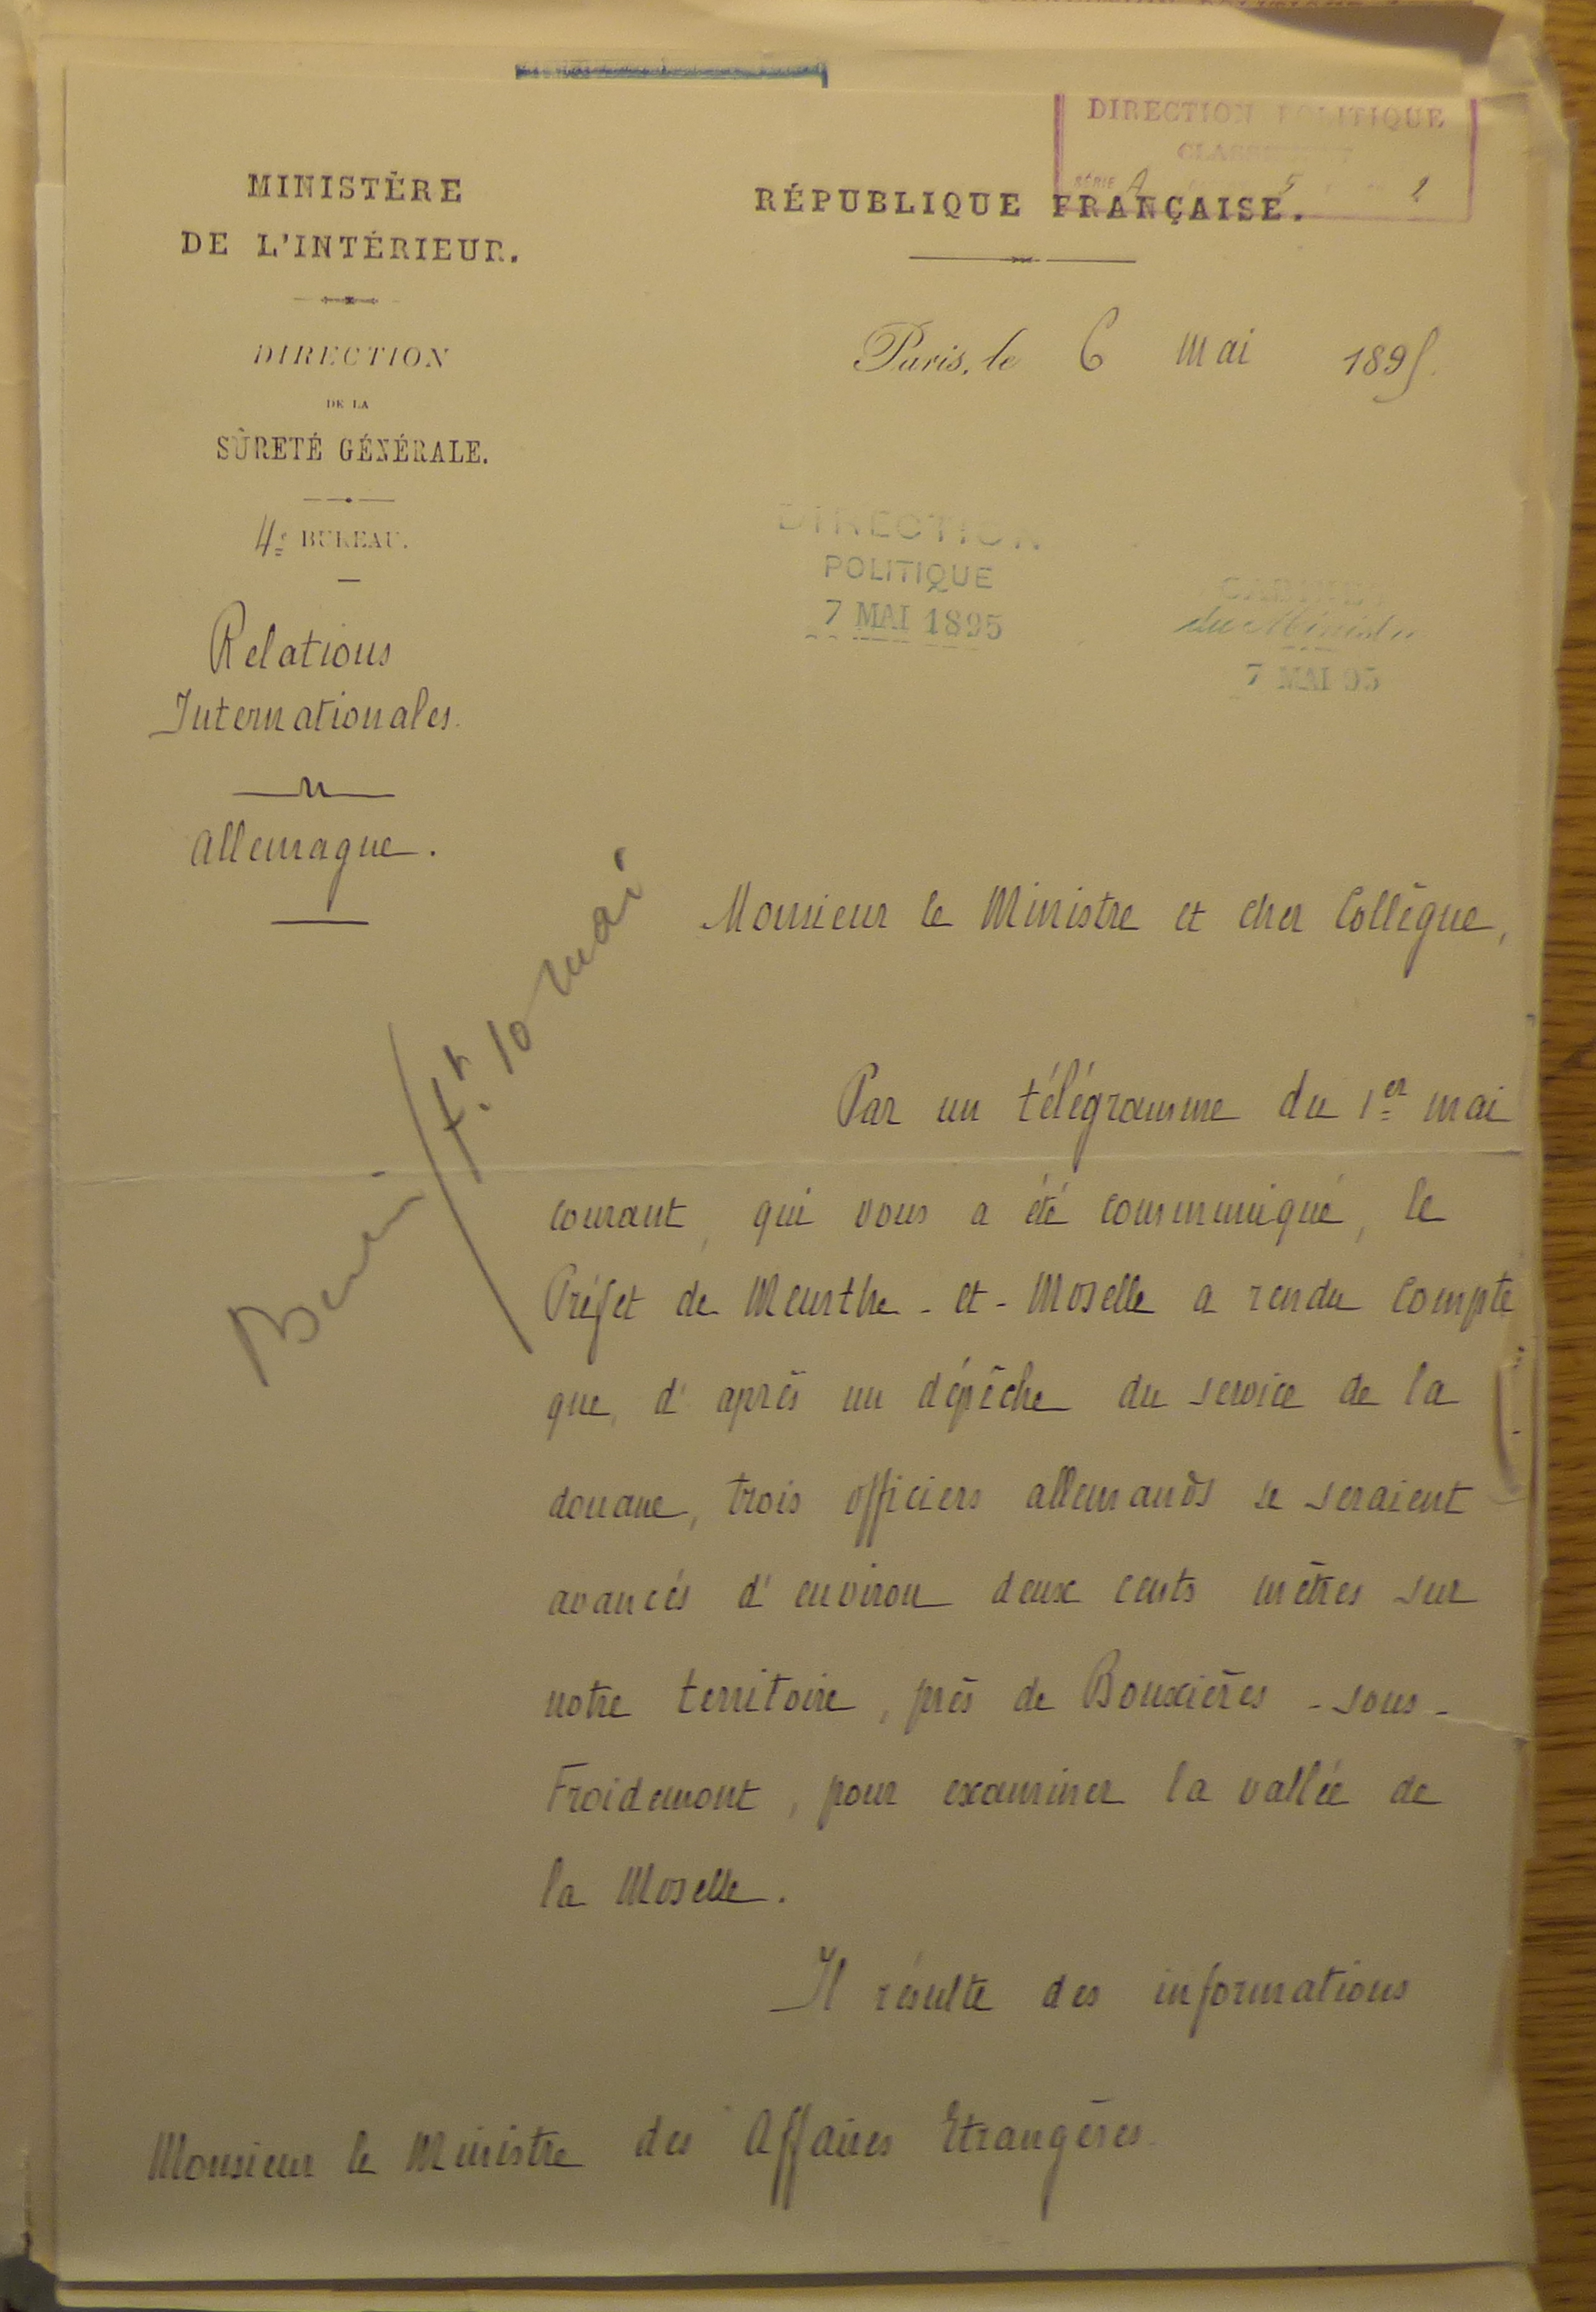 DIRECTION POLITIQUE
CLASSEMENT
SÉRIE A 5 2
MINISTÈRE
DE L'INTÉRIEUR.
RÉPUBLIQUE FRANÇAISE.
DIRECTION
DE LA
SÛRETÉ GÉNÉRALE.
4e BUREAU.
Paris, le 6 mai 1895.
DIRECTION
POLITIQUE
7 MAI 1895
CABINET
du Ministre
7 MAI 95
Relations
Internationales.
Allemagne.
Monsieur le Ministre et cher Collègue,
10 mai
Par un télégramme du 1er mai
courant, qui vous a été communiqué, le
Préfet de Meurthe-et-Moselle a rendu compte
que, d'après un dépêche du service de la
douane, trois officiers allemands se seraient
avancés d'environ deux cents mètres sur
notre territoire, près de Bouxières-sous-
Froidemont, pour examiner la vallée de
la Moselle.
Il résulte des informations
Monsieur le Ministre des Affaires Etrangères.